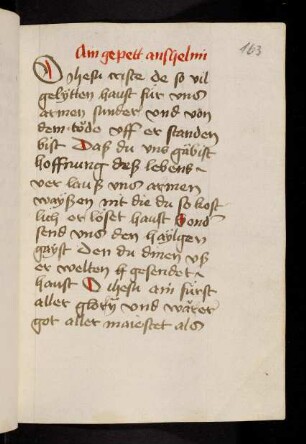 163
Ain gepett anshelmi
O ihesu criste de so vil
gelytten haust für vns
armen sunder vnd von
dem töde vff er standen
bist Daß du vns gäbist
hoffnung deß lebens
ver lauß vns armen
waysen nit die du so kost
lich er löset haust Sond
send vns den haylgen
gayst Den du dinen vß
er welten h gesendet
haust O ihesu ain fürst
aller glory vnd wärer
got aller maiestet als